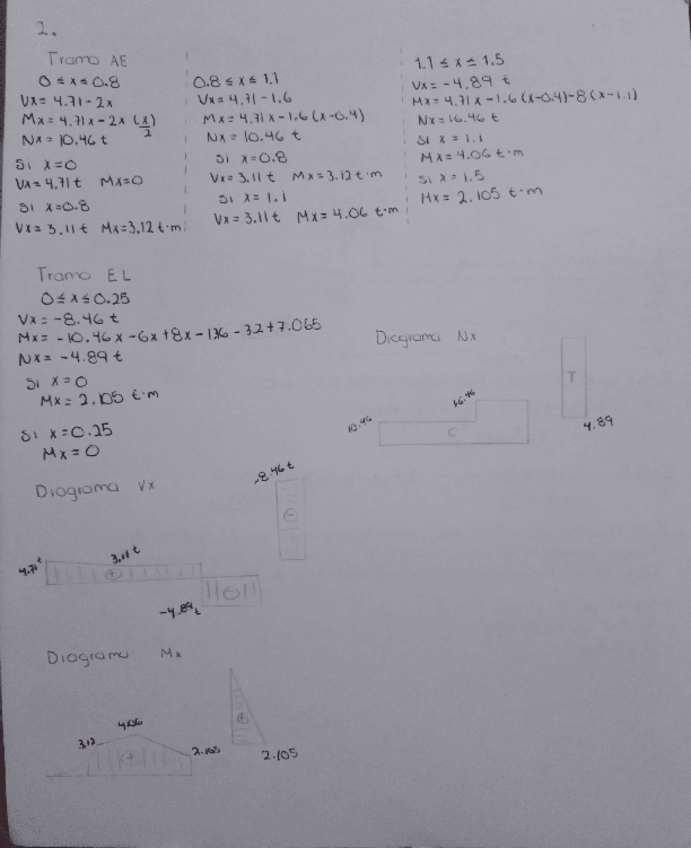 2.
Tramo AE
0 ≤ x ≤ 0.8
Vx = 4.71 - 2x
Mx = 4.71x - 2x (x/2)
Nx = 10.46 t
Si x=0
Vx = 4.71 t Mx=0
Si x=0.8
Vx = 3.11 t Mx=3.12 t·m
0.8 ≤ x ≤ 1.1
Vx = 4.71 - 1.6
Mx = 4.71x - 1.6 (x-0.4)
Nx = 10.46 t
Si x=0.8
Vx = 3.11 t Mx = 3.12 t·m
Si x = 1.1
Vx = 3.11 t Mx = 4.06 t·m
1.1 ≤ x ≤ 1.5
Vx = -4.89 t
Mx = 4.71x - 1.6 (x-0.4) - 8 (x-1.1)
Nx = 16.46 t
Si x = 1.1
Mx = 4.06 t·m
Si x = 1.5
Mx = 2.105 t·m
Tramo EL
0 ≤ x ≤ 0.25
Vx = -8.46 t
Mx = -10.46x - 6x + 8x - 1.76 - 3.2 + 7.065
Nx = -4.89 t
Si x=0
Mx = 2.105 t·m
Si x=0.25
Mx = 0
Diagrama Nx
10.46
16.46
C
T
4.89
Diagrama Vx
-8.46 t
4.71 t
3.11 t
-4.89 t
Diagrama Mx
3.12
4.06
2.105
2.105